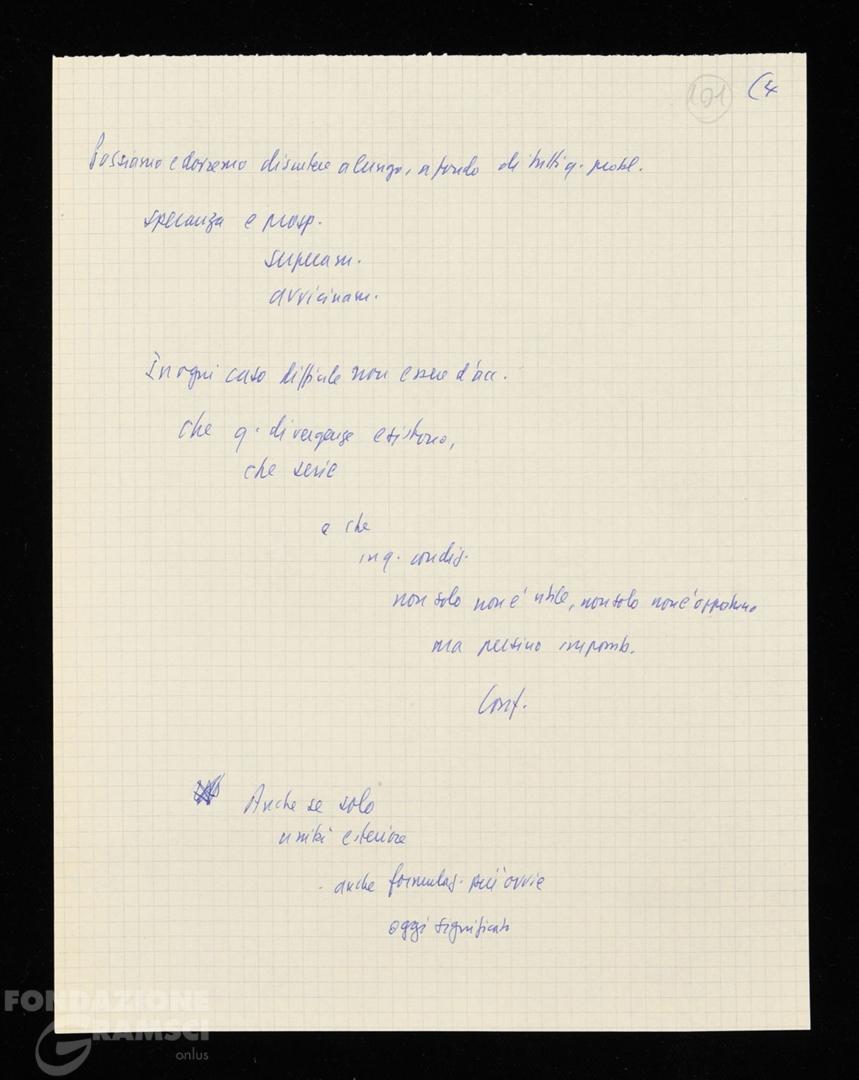 101 (4
Possiamo e dovremo discutere a lungo, a fondo di tutti q. probl.
speranza e prosp.
superam.
avvicinam.
In ogni caso difficile non essere d'acc.
che q. divergenze esistono,
che serie
e che
in q. condiz.
non solo non è utile, non solo non è opportuno
ma persino impossib.
Conf.
Anche se solo
unità esteriore
- anche formulaz. più ovvie
oggi significato
FONDAZIONE
GRAMSCI
onlus